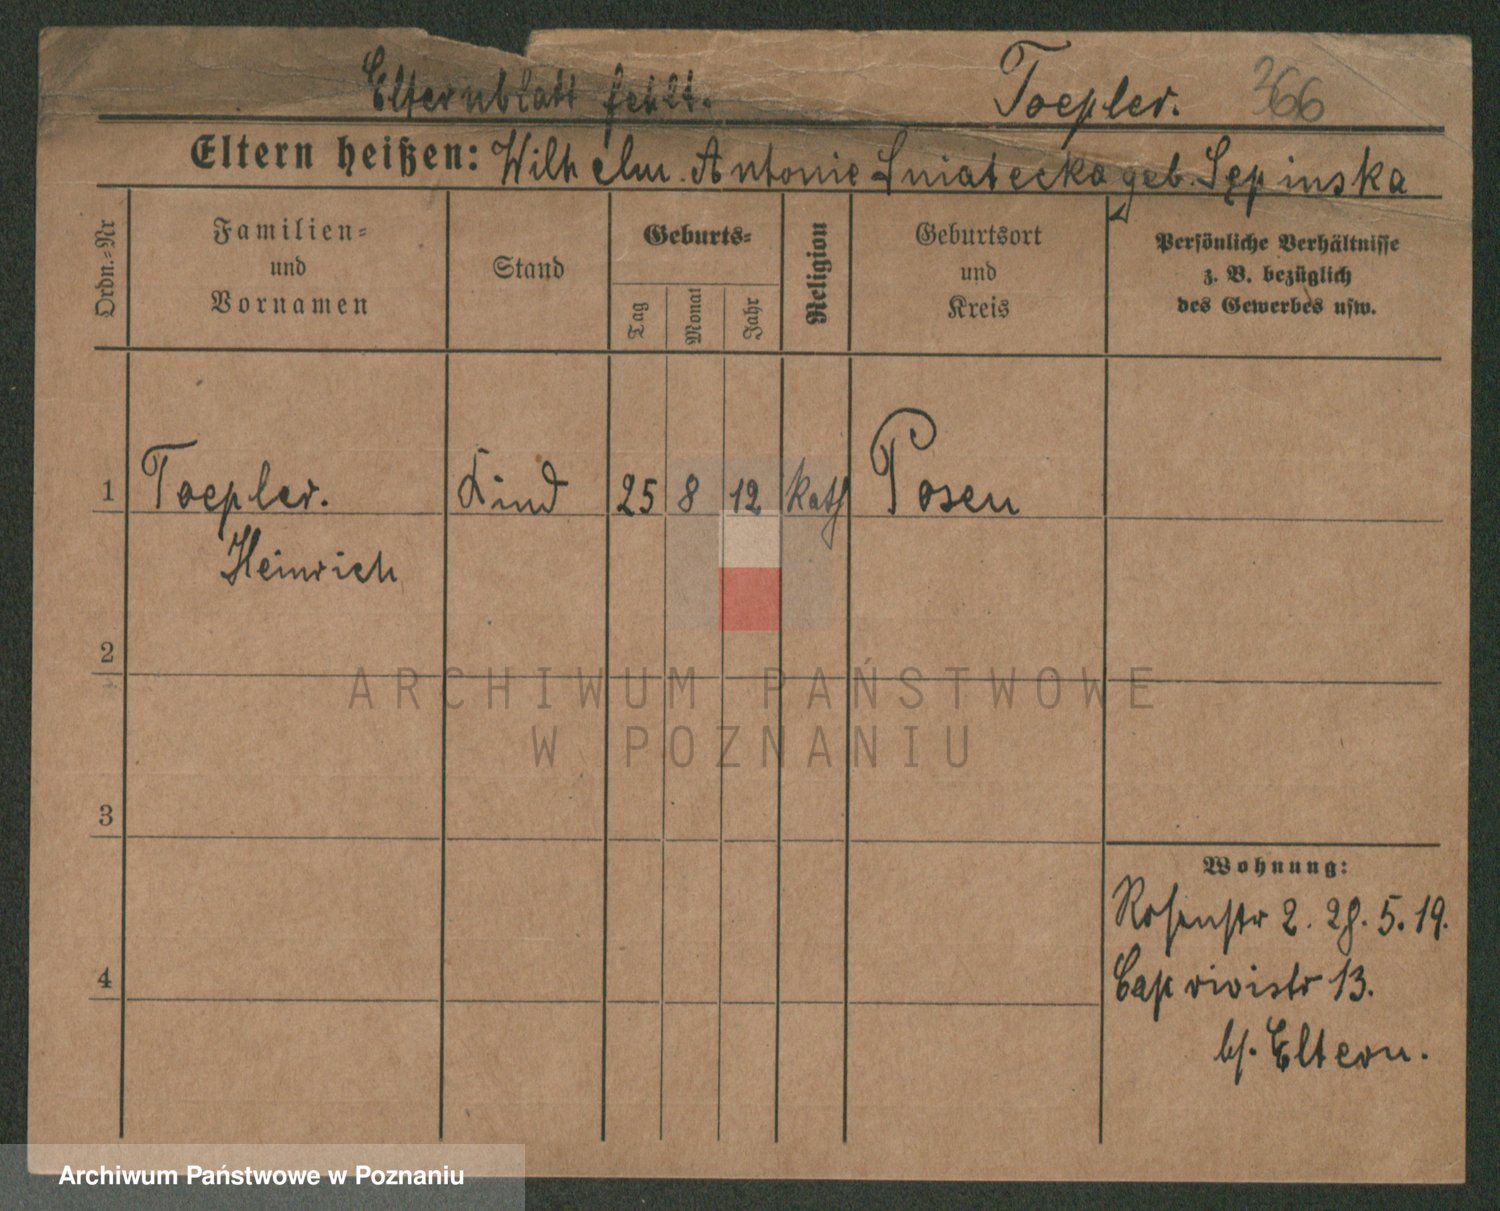 Elternblatt fehlt. Toepler. 366
Eltern heißen: Wilhelm. Antonie Sniatecka geb. Sępinska
Ordn.=Nr
Familien=
und
Vornamen
Stand
Geburts=
Tag
Monat
Jahr
Religion
Geburtsort
und
Kreis
Persönliche Verhältnisse
z. B. bezüglich
des Gewerbes usw.
1 Toepler. Kind 25 8 12 kath Posen
Heinrich
2
ARCHIWUM PAŃSTWOWE
W POZNANIU
3
Wohnung:
Rosenstr 2. 28. 5. 19.
4
Caprivistr 13.
bs. Eltern.
Archiwum Państwowe w Poznaniu